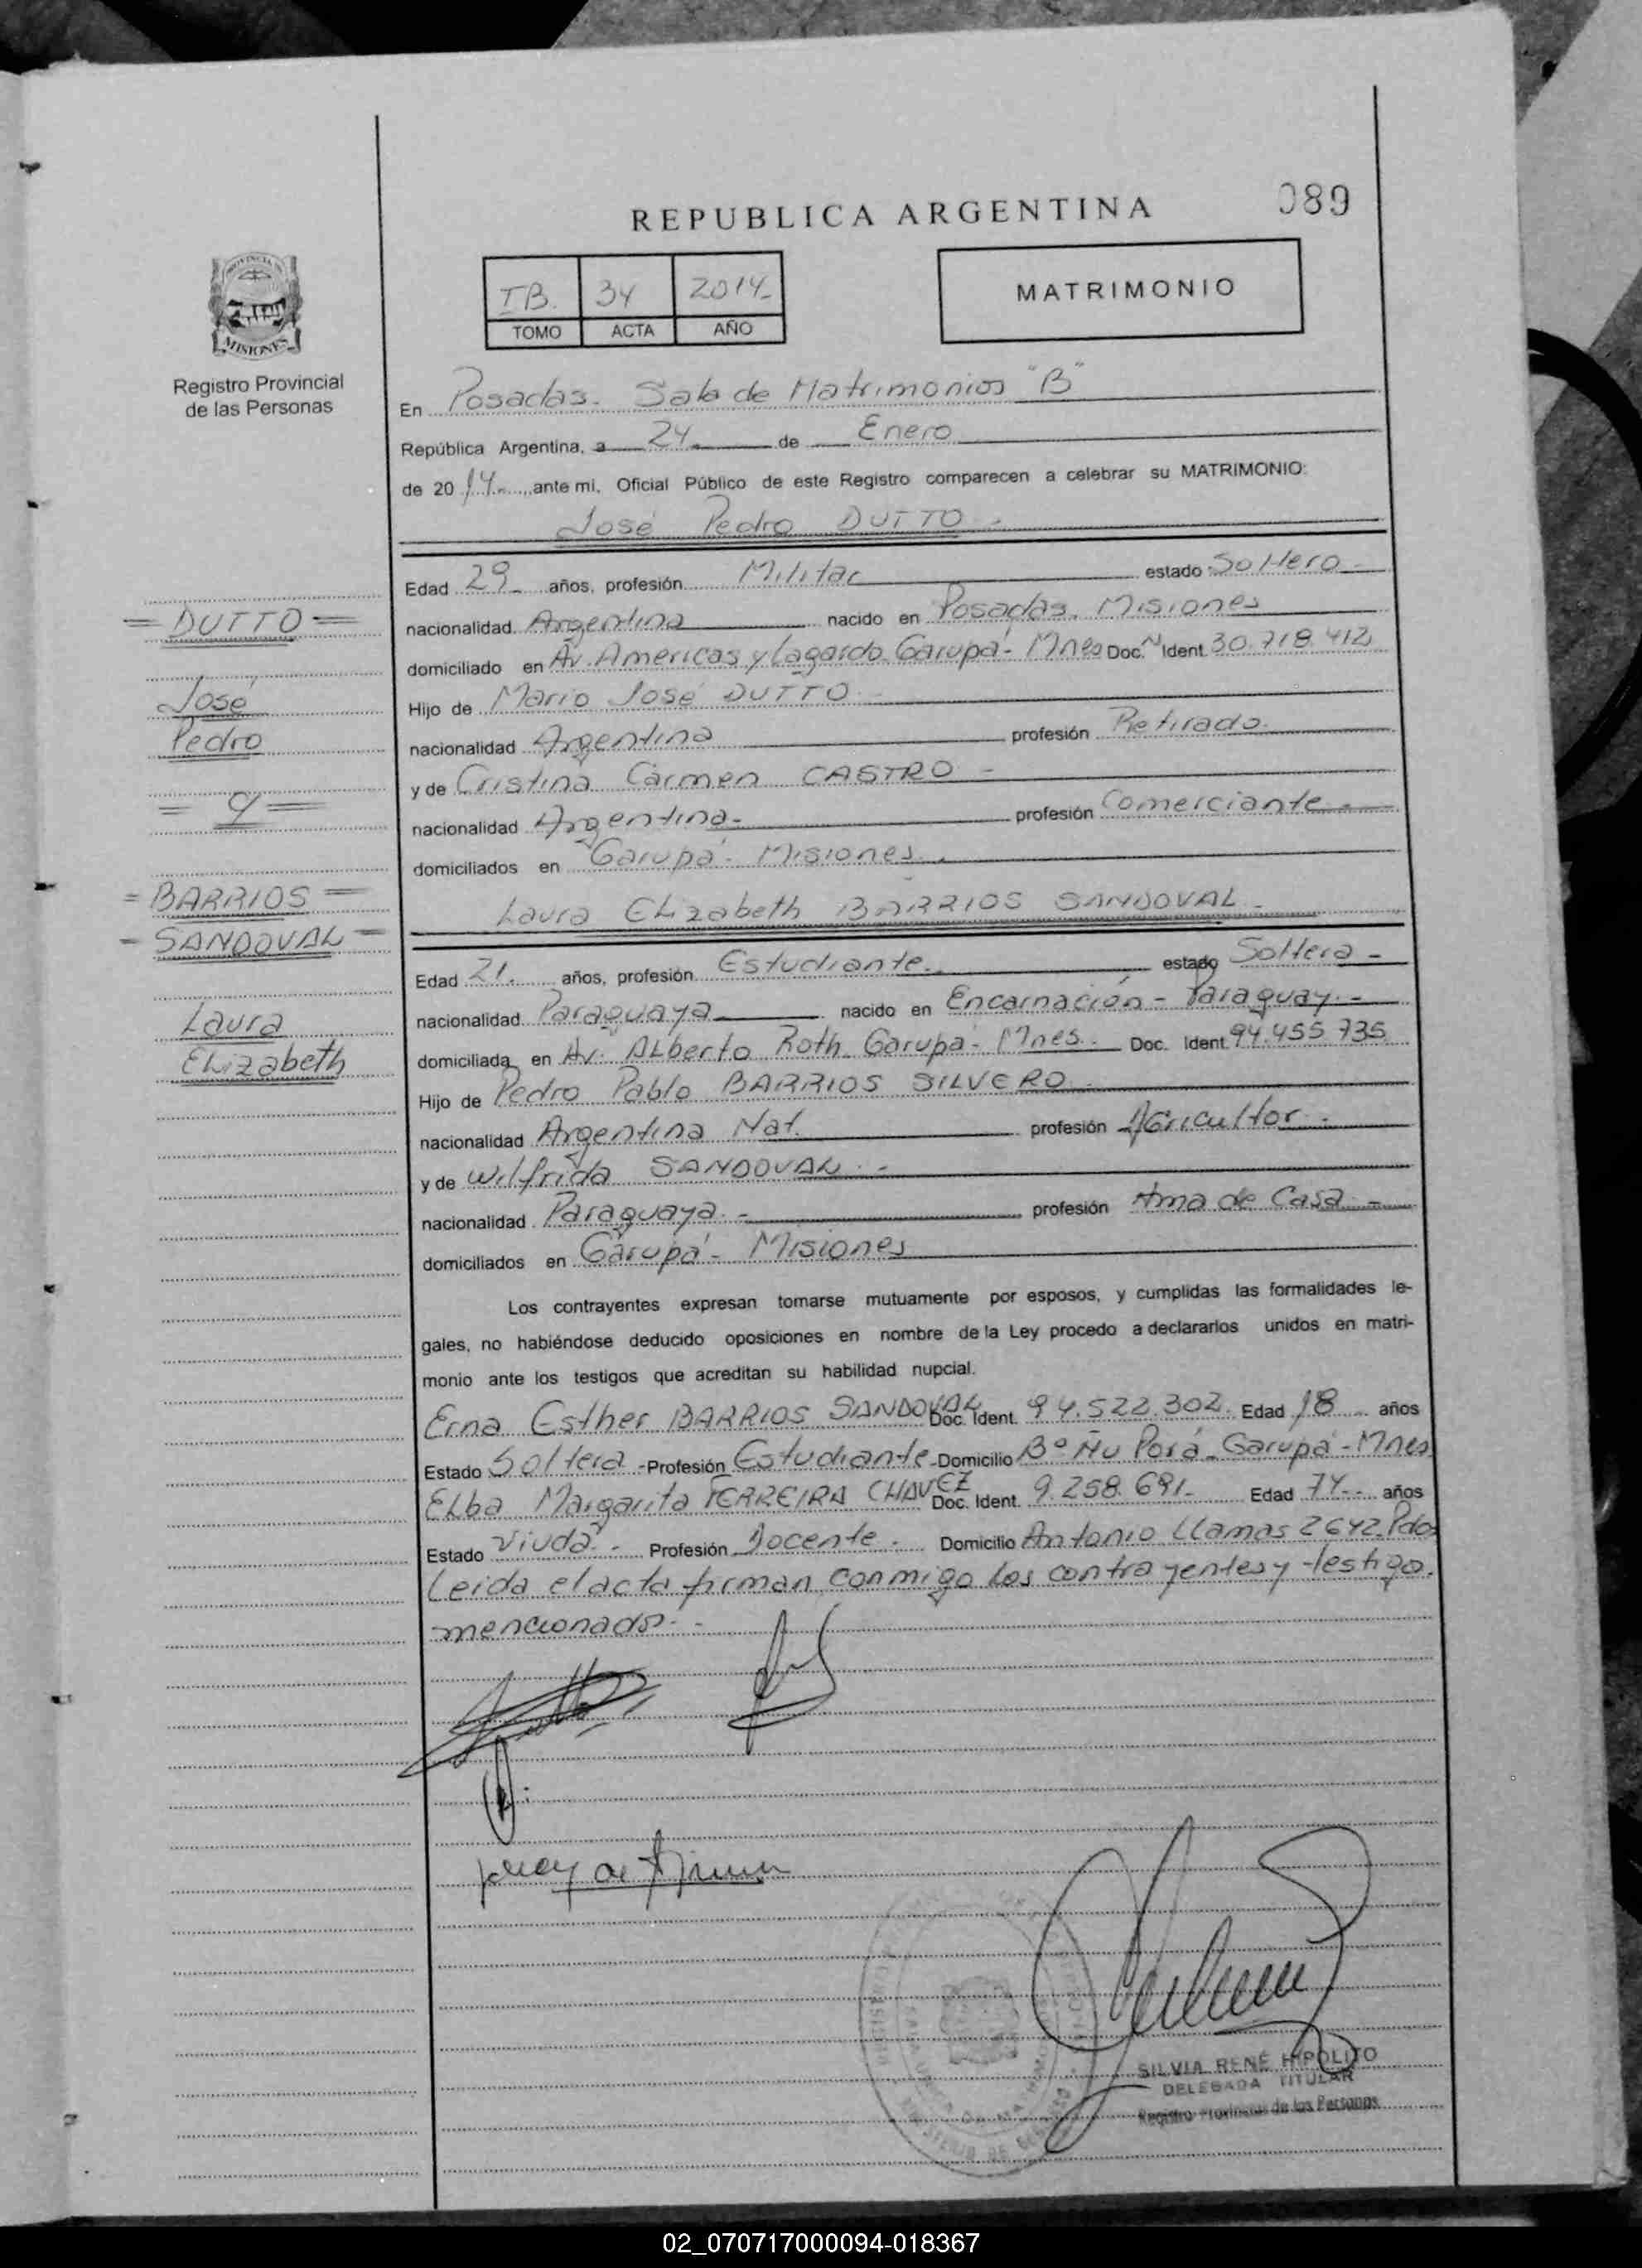 089
REPUBLICA ARGENTINA
IB. 34 2014-
TOMO ACTA AÑO
MATRIMONIO
PROVINCIA DE
MISIONES
Registro Provincial
de las Personas
En Posadas. Sala de Matrimonios "B"
República Argentina, a 24 de Enero
de 2014 ante mi, Oficial Público de este Registro comparecen a celebrar su MATRIMONIO:
José Pedro DUTTO -
Edad 29 años, profesión Militar estado Soltero -
= DUTTO =
nacionalidad Argentina nacido en Posadas. Misiones
domiciliado en Av. Americas y Lagardo Garupá - Mnes Doc. Ident. 30.718.412
José
Hijo de Mario José DUTTO -
Pedro
nacionalidad Argentina profesión Retirado.
y de Cristina Carmen CASTRO -
= y =
nacionalidad Argentina - profesión Comerciante -
domiciliados en Garupá - Misiones.
= BARRIOS =
Laura Elizabeth BARRIOS SANDOVAL -
- SANDOVAL -
Edad 21. años, profesión Estudiante. estado Soltera -
Laura
nacionalidad Paraguaya nacido en Encarnación - Paraguay. -
Elizabeth
domiciliada en Av. Alberto Roth. Garupá - Mnes. Doc. Ident. 94.455.735
Hijo de Pedro Pablo BARRIOS SILVERO -
nacionalidad Argentina Nat. profesión Agricultor -
y de Wilfrida SANDOVAL. -
nacionalidad Paraguaya. - profesión Ama de Casa -
domiciliados en Garupá - Misiones
Los contrayentes expresan tomarse mutuamente por esposos, y cumplidas las formalidades le-
gales, no habiéndose deducido oposiciones en nombre de la Ley procedo a declararlos unidos en matri-
monio ante los testigos que acreditan su habilidad nupcial.
Erna Esther BARRIOS SANDOVAL Doc. Ident. 94.522.302 Edad 18 años
Estado Soltera - Profesión Estudiante - Domicilio Bº Ñu Porá - Garupá - Mnes
Elba Margarita FERREIRA CHAVEZ Doc. Ident. 9.258.691- Edad 74 años
Estado Viuda. - Profesión Docente. Domicilio Antonio Llamas 2642. Pdas
Leida el acta firman conmigo los contrayentes y testigo.
mencionados. -
SILVIA RENÉ HIPOLITO
DELEGADA TITULAR
Registro Provincial de las Personas
02_070717000094-018367